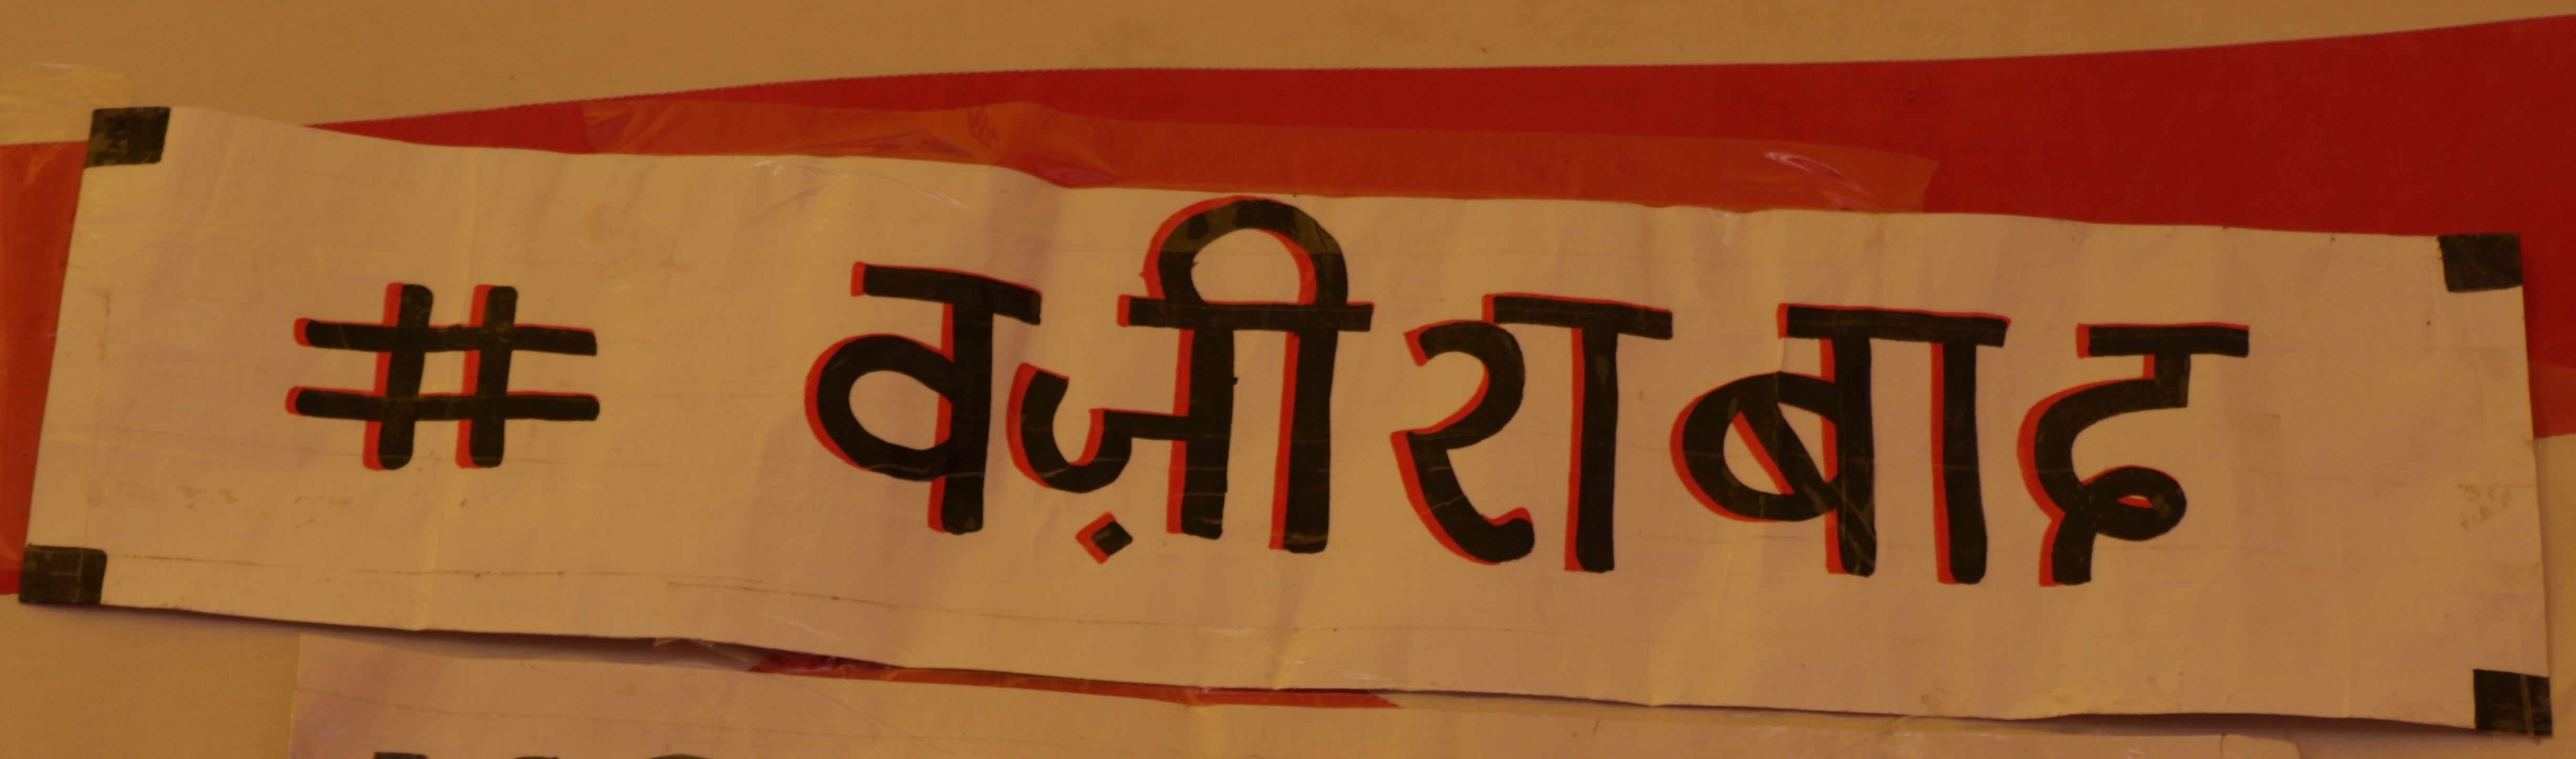 # वज़ीराबाद